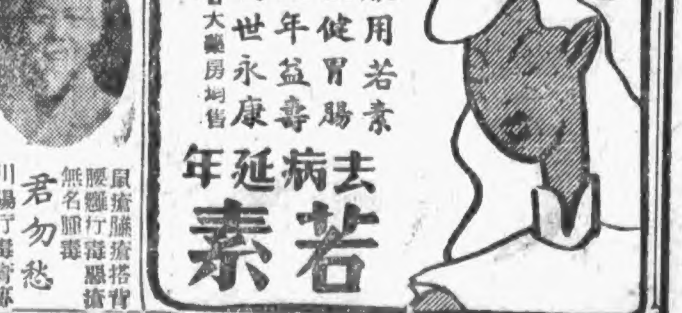 用若素
健胃腸
年益壽
世永康
大藥房均售
去病延年
若素
鼠瘡臁瘡搭背
腰癰疔毒惡瘡
無名腫毒
君勿愁